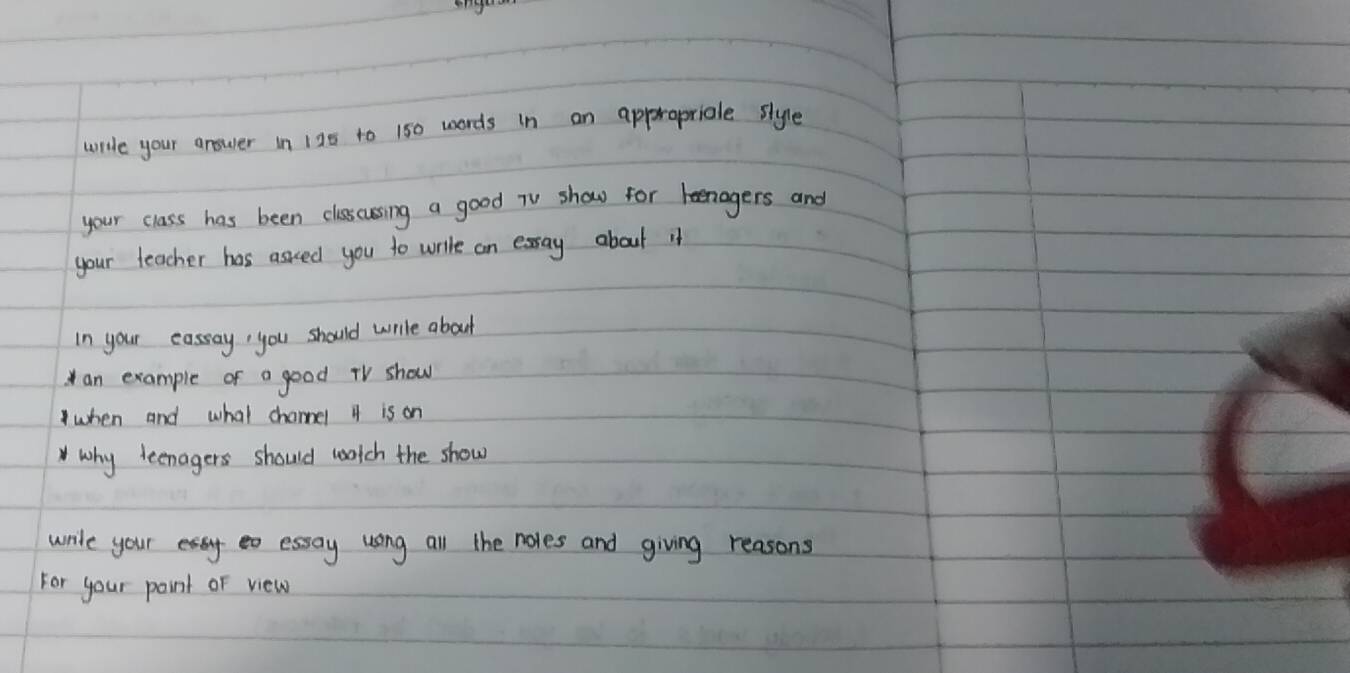 write your answer in 125 to 150 words in an appropriate style
your class has been disscussing a good TV show for teenagers and
your teacher has asked you to write an essay about it
in your eassay, you should write about
* an example of a good TV show
* when and what channel it is on
* why teenagers should watch the show
write your essay using all the notes and giving reasons
For your point of view